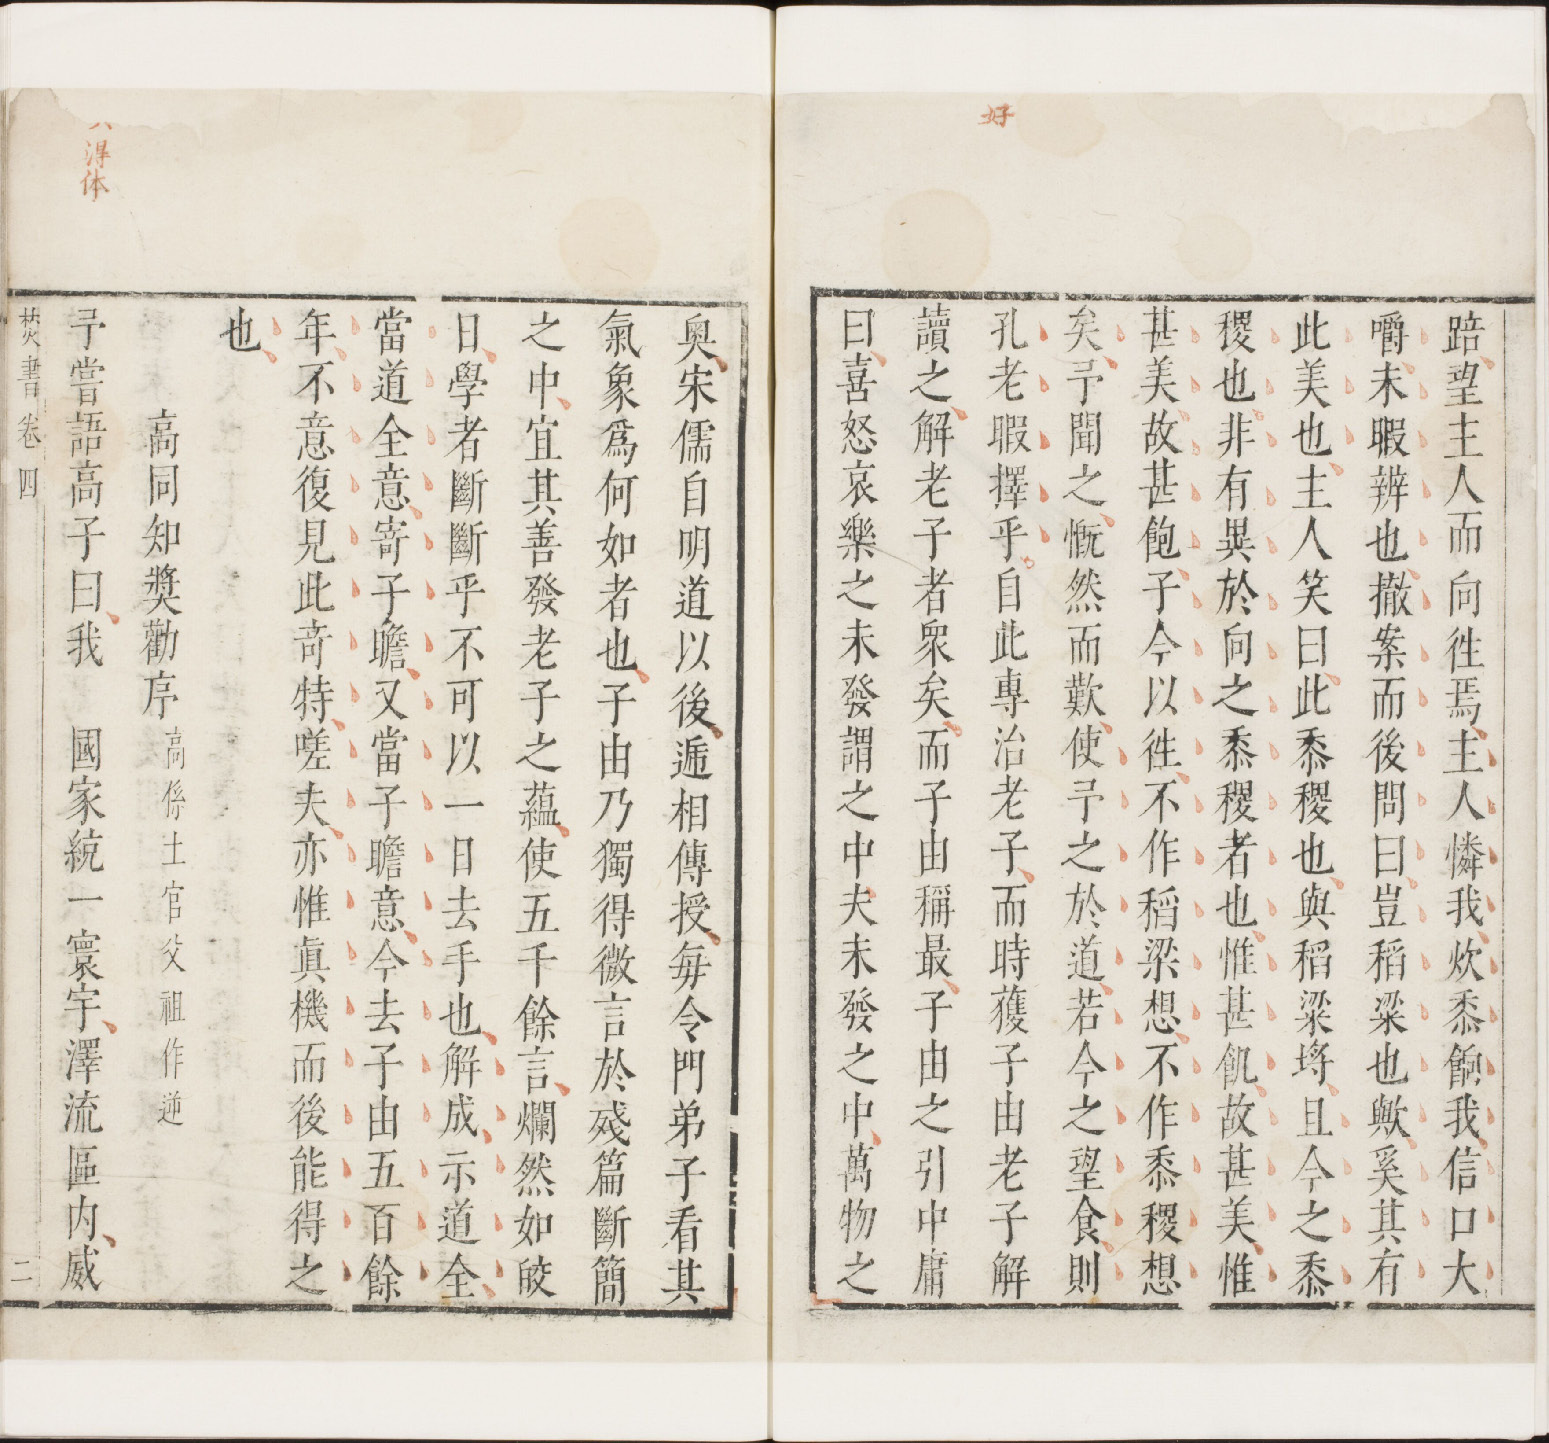 好
踣望主人而向往焉主人憐我炊黍餉我信口大
嚼未暇辨也撤案而後問曰豈稻粱也歟奚其有
此美也主人笑曰此黍稷也與稻粱埒且今之黍
稷也非有異於向之黍稷者也惟甚飢故甚美惟
甚美故甚飽子今以徃不作稻梁想不作黍稷想
矣予聞之慨然而歎使予之於道若今之望食則
孔老暇擇乎自此專治老子而時獲子由老子解
讀之解老子者衆矣而子由稱最子由之引中庸
曰喜怒哀樂之未發謂之中夫未發之中萬物之
奧宋儒自明道以後遞相傳授每令門弟子看其
氣象爲何如者也子由乃獨得微言於殘篇斷簡
之中宜其善發老子之蘊使五千餘言爛然如皎
日學者斷斷乎不可以一日去手也解成示道全
當道全意寄子瞻又當子瞻意今去子由五百餘
年不意復見此竒特嗟夫亦惟眞機而後能得之
也
高同知奬勸序高係土官父祖作逆
得体
予嘗語高子曰我 國家統一寰宇澤流區内威
焚書 卷四 二